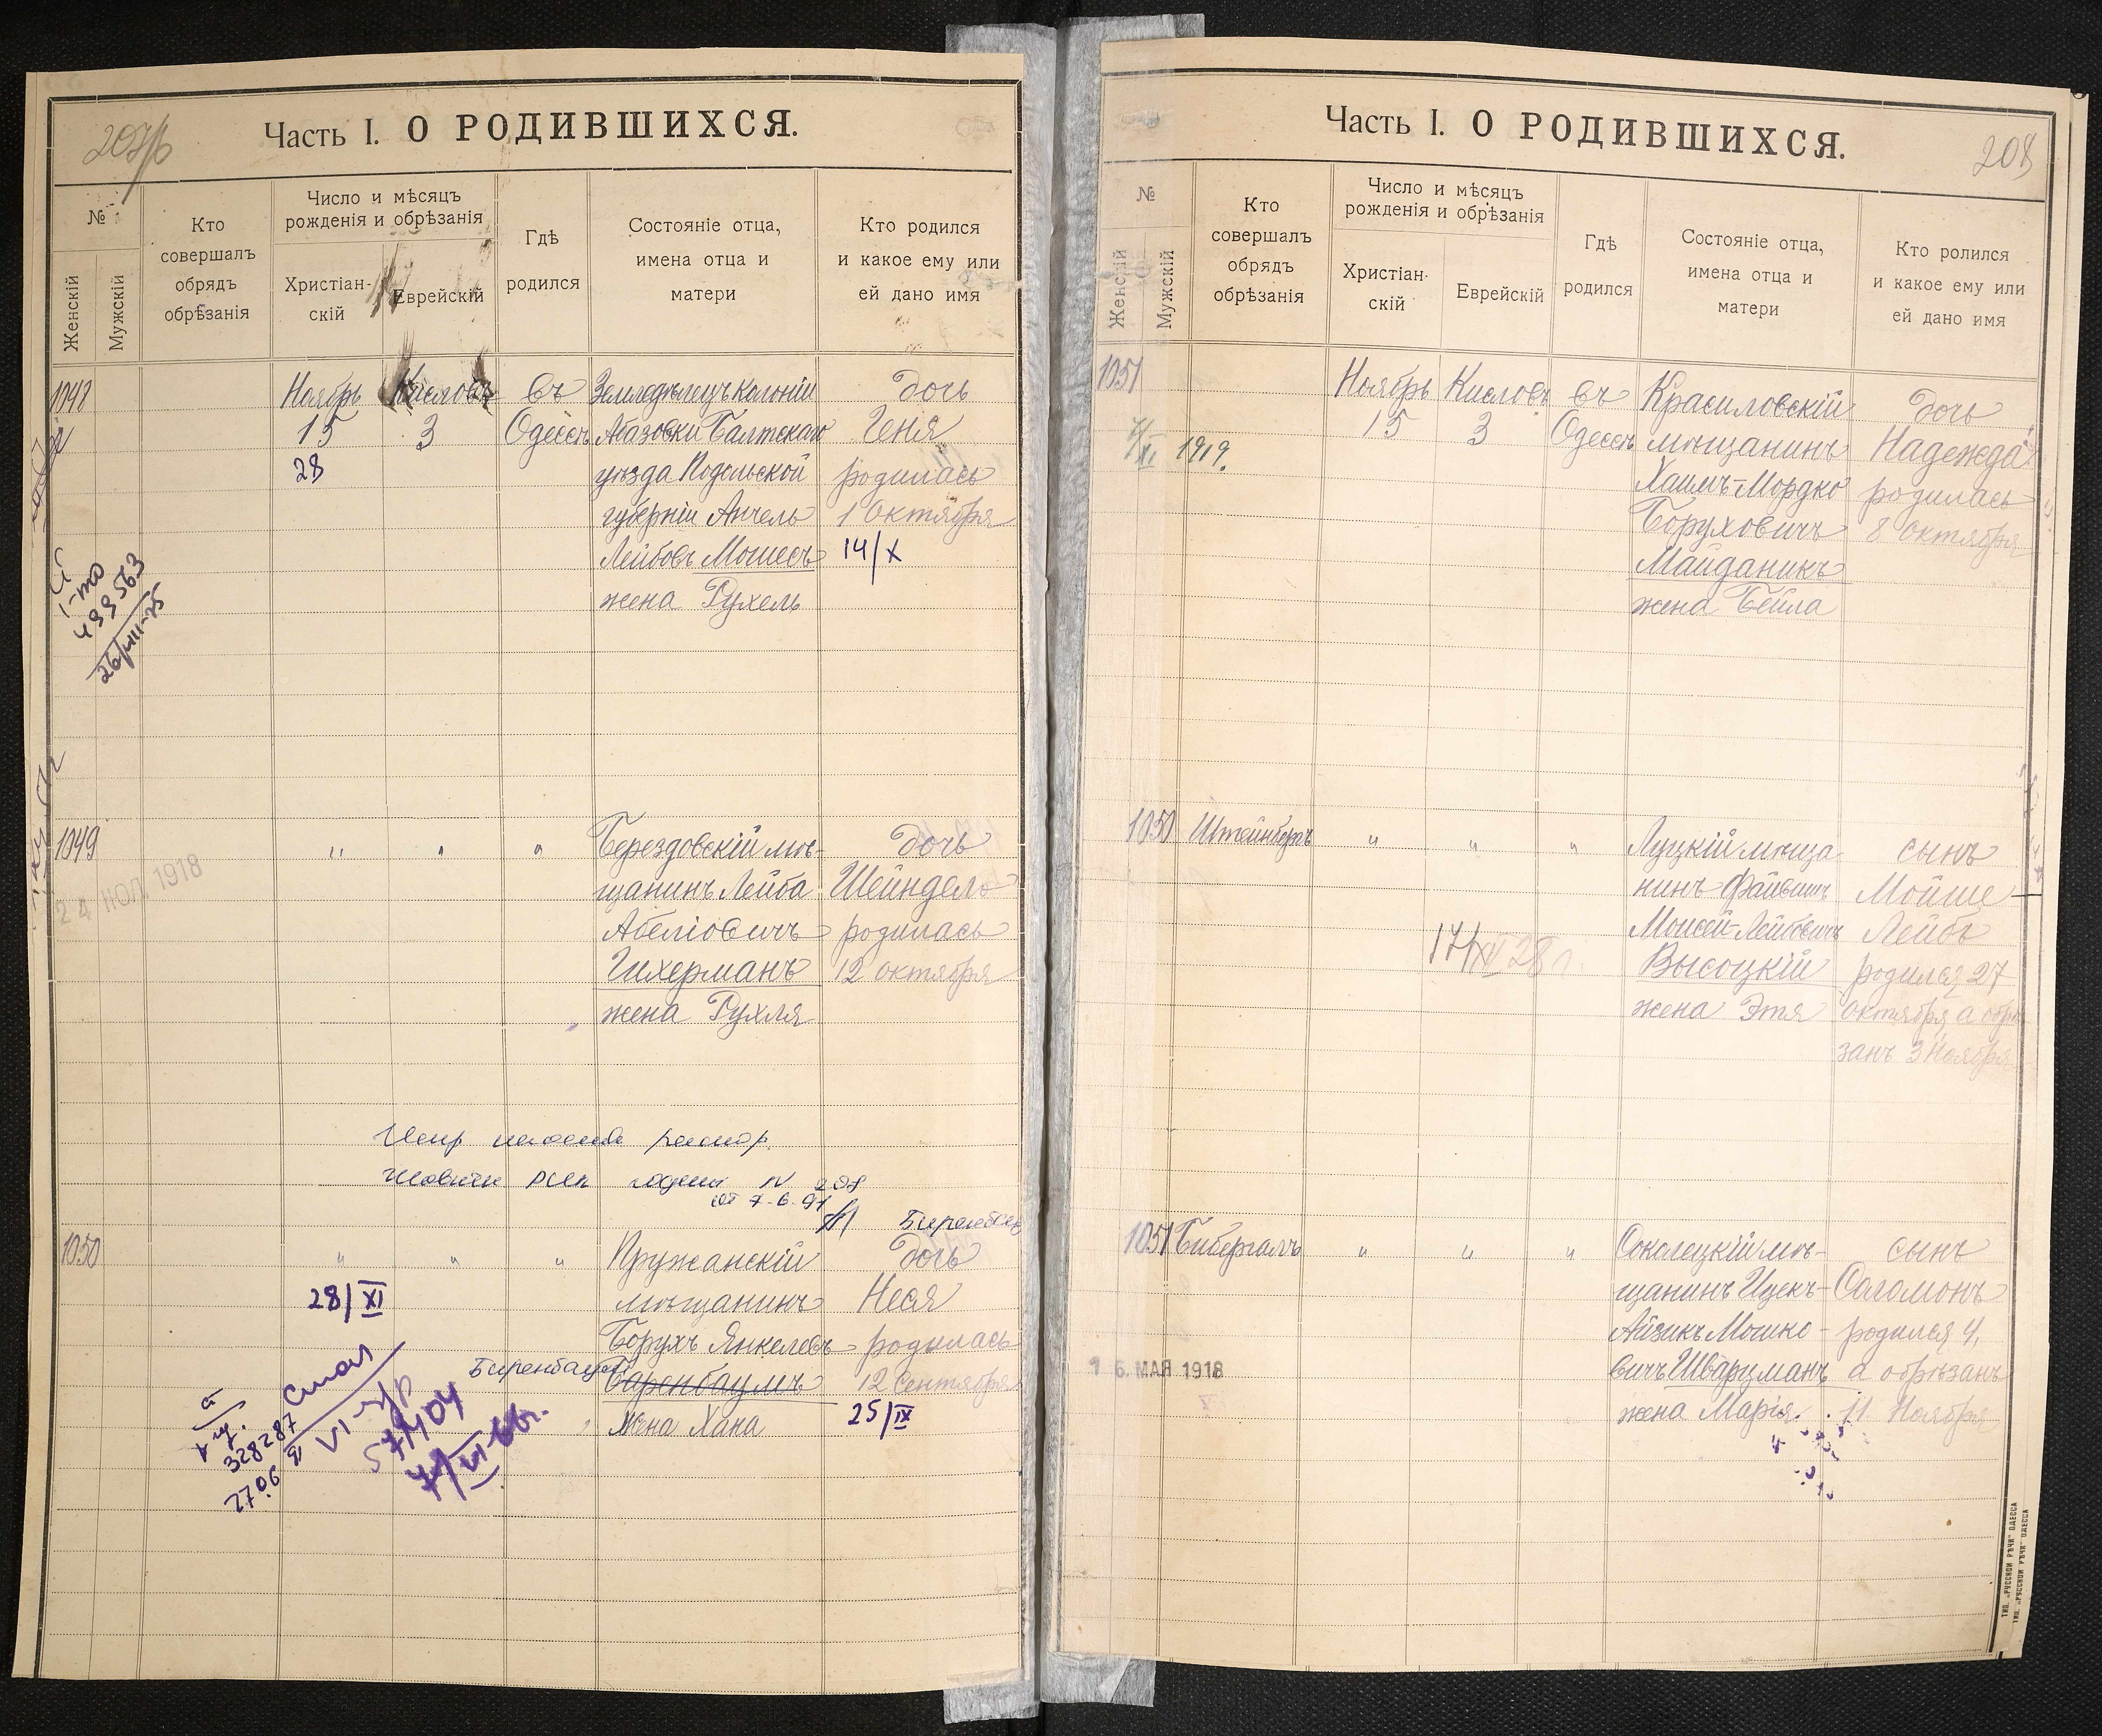 207/б
Часть I. О РОДИВШИХСЯ.
№
Женскій
Мужскій
Кто
совершалъ
обрядъ
обрѣзанія
Число и мѣсяцъ
рожденія и обрѣзанія
Христіан-
скій
Еврейскій
Гдѣ
родился
Состояніе отца,
имена отца и
матери
Кто родился
и какое ему или
ей дано имя
1048
Ноябрь
15
28
Кисловъ
3
въ
Одессѣ
Земледѣлецъ колоніи
Абазовки Балтскаго
уѣзда Подольской
губерніи Анчель
Лейбовъ Мошесъ
жена Рухель
дочь
Геня
родилась
1 Октября
14/X
1-то
499563
26/VIII-75
1049
24 1918
" " "
Берездовскій мѣ-
щанинъ Лейба
Абеліовичъ
Гихерманъ
жена Рухля
дочь
Шейндель
родилась
12 октября
208
от 7-6-91
1050
" " "
28/XI
Пружанскій
мѣщанинъ
Борухъ Янкелевъ
Биренбаум
Баренбаумъ
жена Хана
дочь
Неся
родилась
12 Сентября
25/IX
328287
27.06
VI-
571404
7/VI-66г.
Часть I. О РОДИВШИХСЯ.
208
№
Женскій
Мужскій
Кто
совершалъ
обрядъ
обрѣзанія
Число и мѣсяцъ
рожденія и обрѣзанія
Христіан-
скій
Еврейскій
Гдѣ
родился
Состояніе отца,
имена отца и
матери
Кто ролился
и какое ему или
ей дано имя
1051
1919.
Ноябрь
15
Кисловъ
3
въ
Одессѣ
Красиловскій
мѣщанинъ
Хаимъ-Мордко
Боруховичъ
Майданикъ
жена Бейла
дочь
Надежда
родилась
8 Октября
1050
Штейнбергъ
" " "
17/XI 28 г.
Луцкій мѣща-
нинъ Файвишъ
Мошей-Лейбовичъ
Высоцкій
жена Этя
сынъ
Мойше
Лейбъ
родился 27
октября, а обрѣ-
занъ 3 Ноября
1051
Бибергалъ
" " "
16 МАЯ 1918
Соколецкій мѣ-
щанинъ Ицек-
Айзикъ Мошко-
вичъ Шварцманъ
жена Марія.
сынъ
Соломонъ
родился 4,
а обрѣзанъ
11 Ноября
ТИП. „РУССКОЙ РѢЧИ“ ОДЕССА
ТИП. „РУССКОЙ РѢЧИ“ ОДЕССА